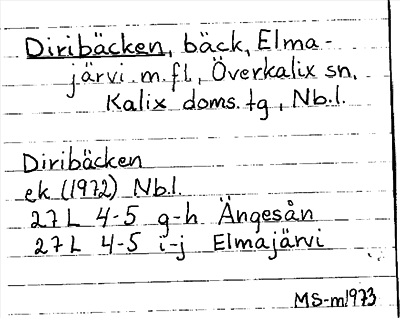 Diribäcken, bäck, Elma-
järvi m.fl., Överkalix sn,
Kalix doms.tg, Nb.l.
Diribäcken
ek (1972) Nb.l.
27L 4-5 g-h Ängesån
27L 4-5 i-j Elmajärvi
MS-m1973